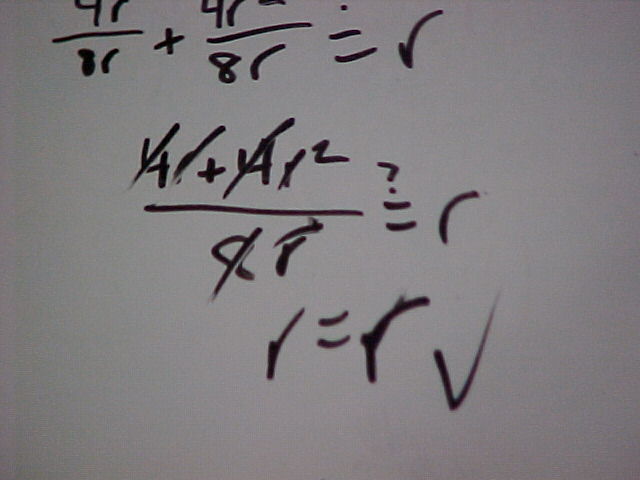 4r/8r + 4r²/8r ≟ r
4r+4r²/8r ≟ r
r=r √